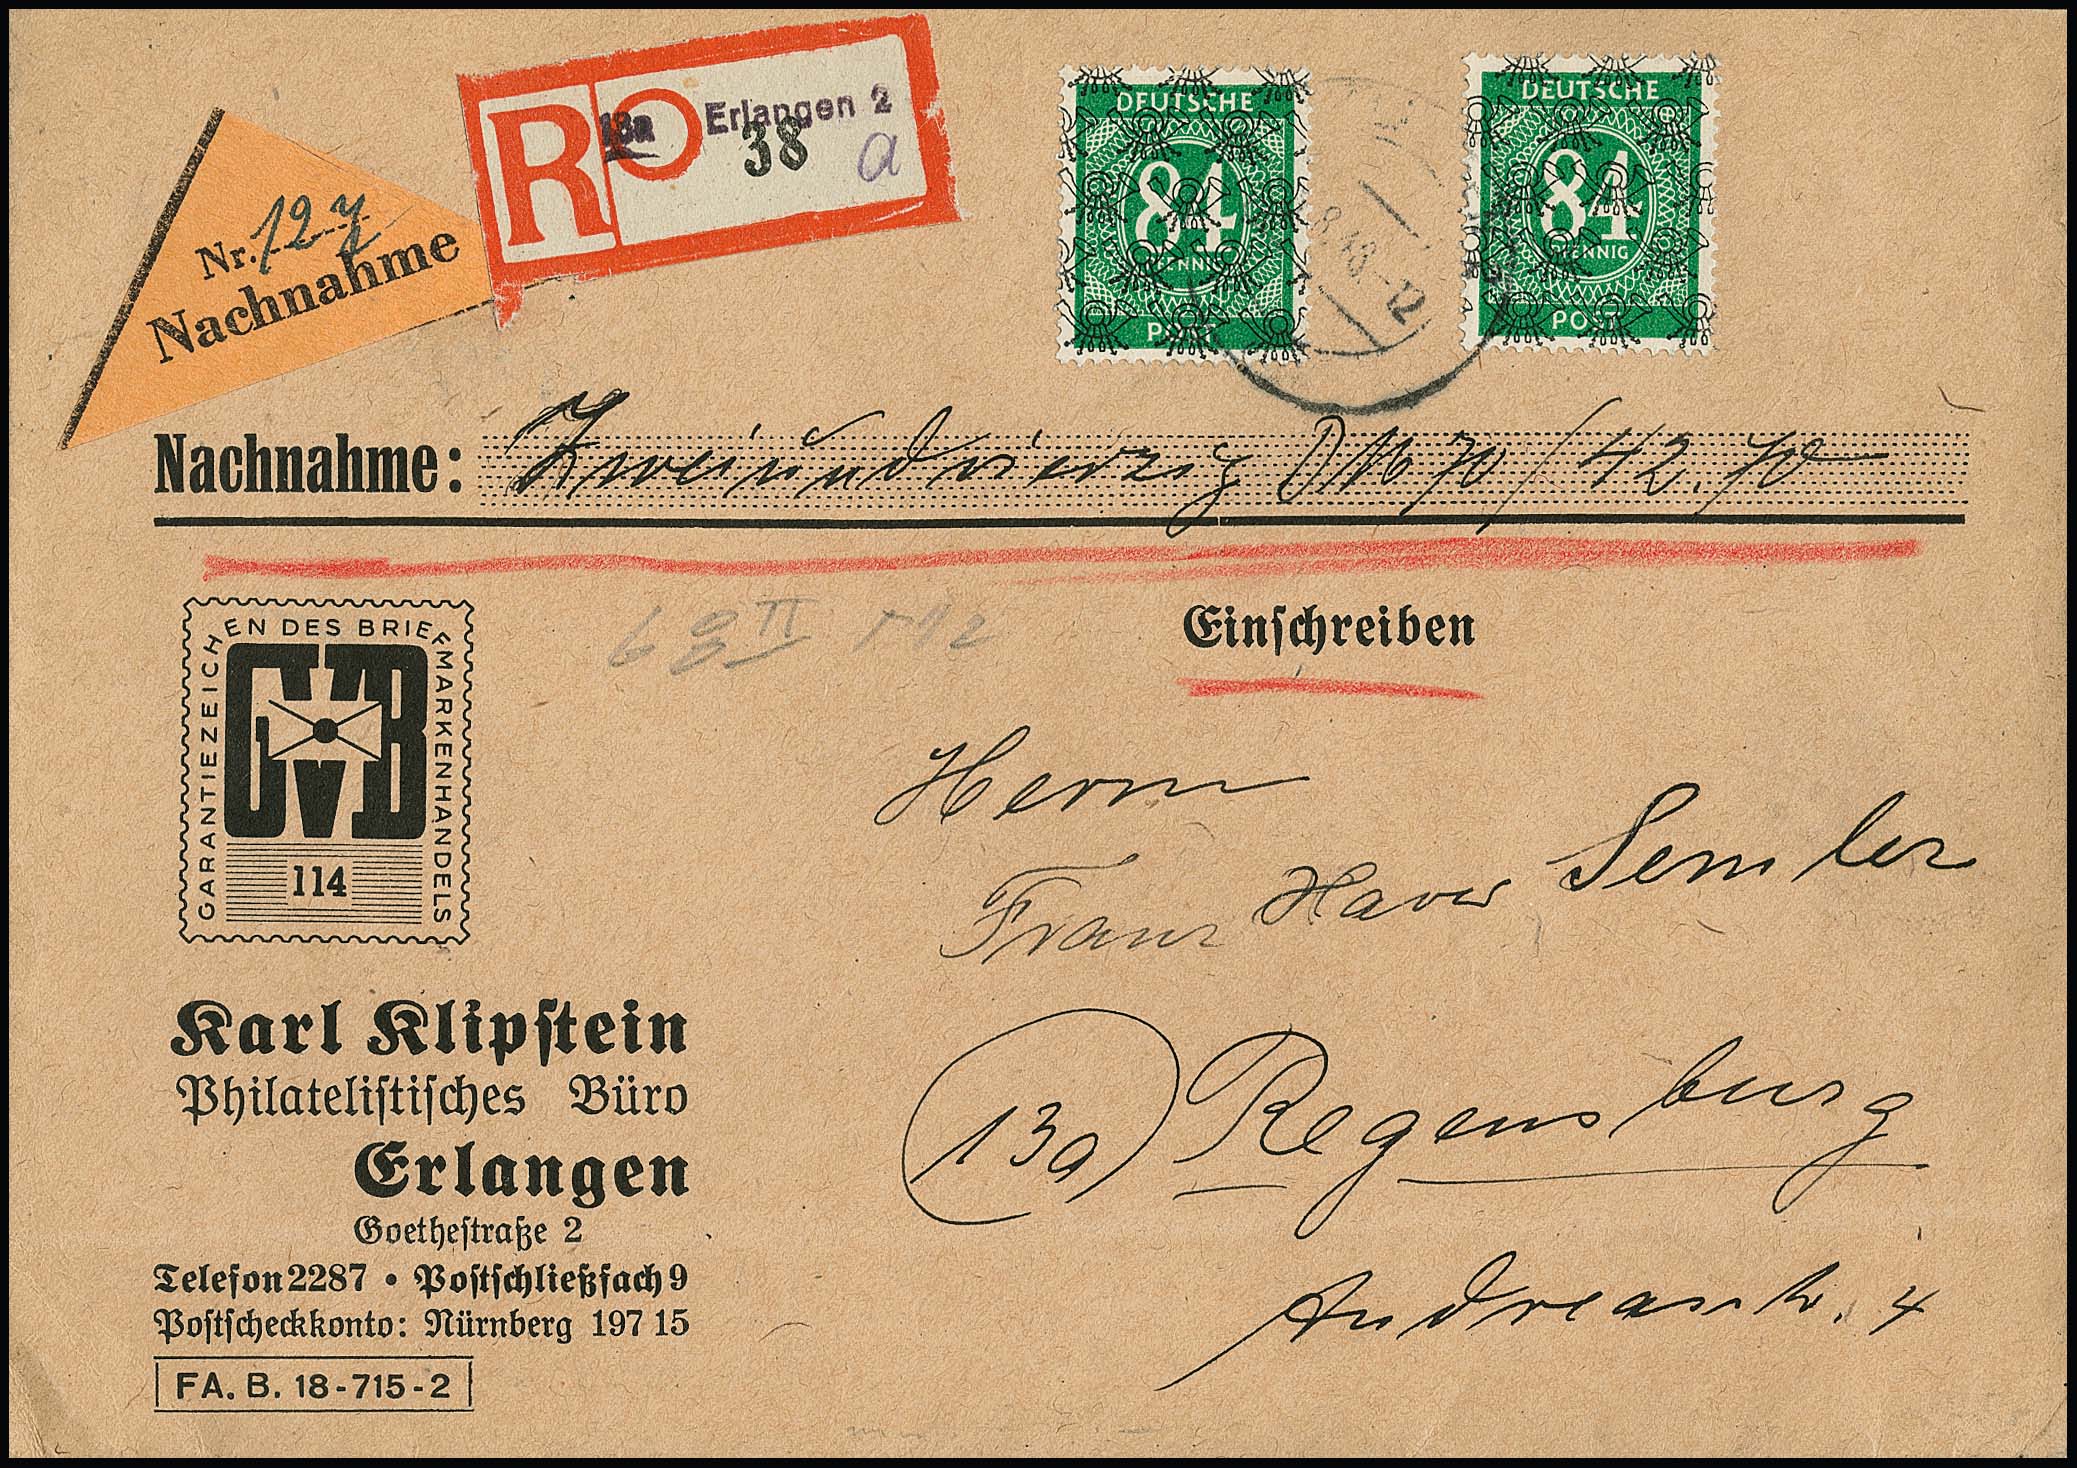 Nr. 127
Nachnahme
R 13a Erlangen 2
38 a
DEUTSCHE
84
PFENNIG
POST
DEUTSCHE
84
PFENNIG
POST
8.48.-12
Nachnahme: Zweiundvierzig DM 70/42.70
Einschreiben
GARANTIEZEICHEN DES BRIEFMARKENHANDELS
GVB
114
Herrn
Franz Xaver Semler
13a Regensburg
Andreasstr. 4
Karl Klipstein
Philatelistisches Büro
Erlangen
Goethestraße 2
Telefon 2287 • Postschließfach 9
Postscheckkonto: Nürnberg 197 15
FA. B. 18-715-2